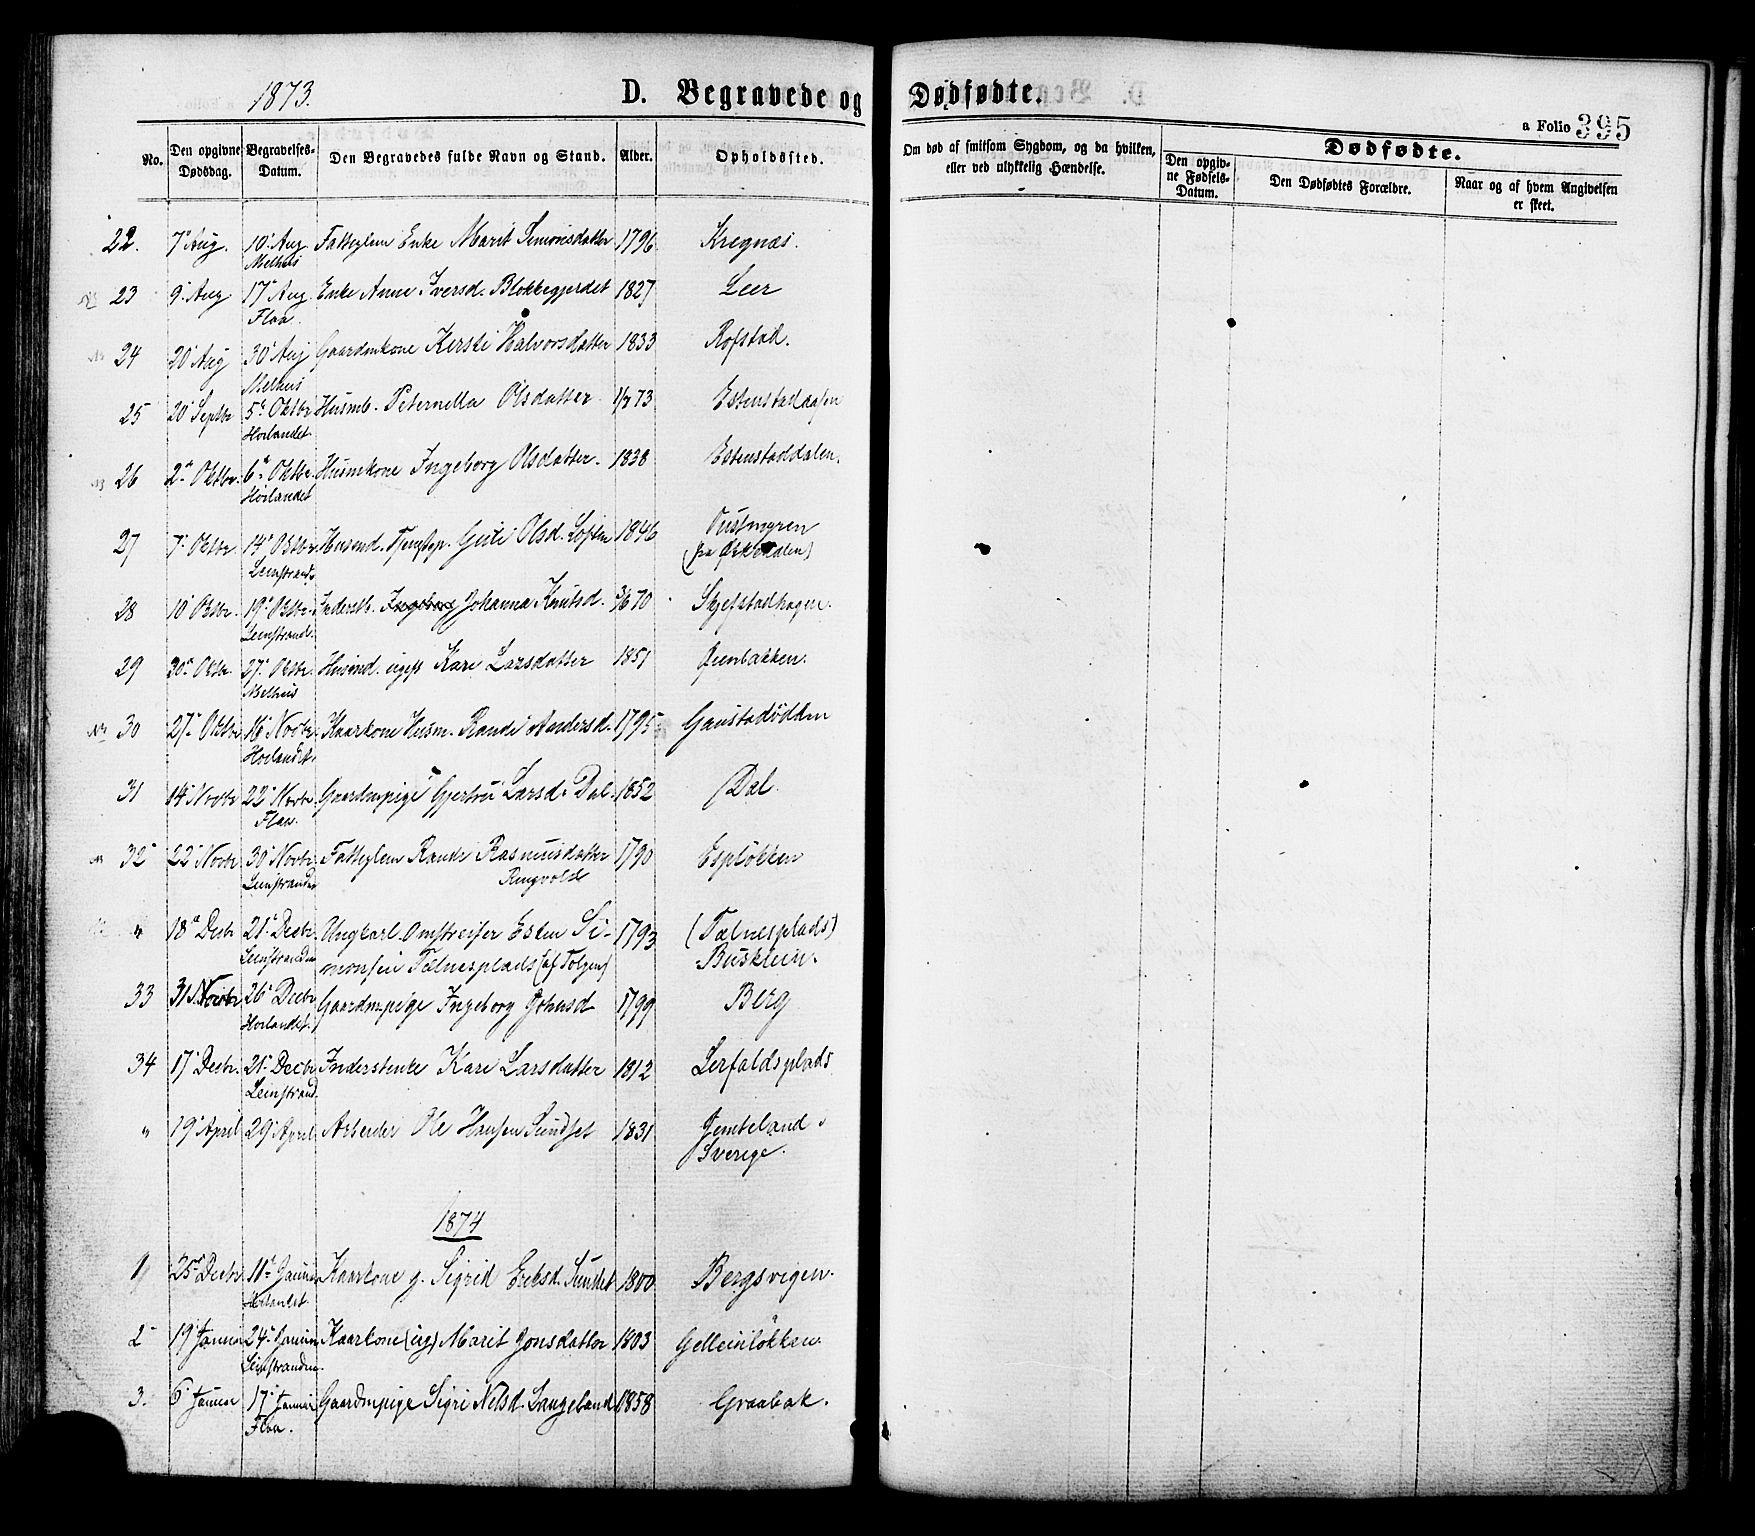 1873.
D. Begravede og Dødfødte.
a Folio 395
No.
Den opgivne Dødsdag.
Begravelses-Datum.
Den Begravedes fulde Navn og Stand.
Alder.
Opholdssted.
Om død af smitsom Sygdom, og da hvilken, eller ved ulykkelig Hændelse.
Dødfødte.
Den opgivne Fødsels-Datum.
Den Dødfødtes Forældre.
Naar og af hvem Angivelsen er skeet.
22. 7 Aug. 10 Aug Fattiglem Enke Marit Simonsdatter 1796 Kregnæs.
Melhus
23 9 Aug 17 Aug Enke Anne Iversd. Blokkegjerdet 1827 Leer
Flaa
24 20 Aug 30 Aug Gaardmkone Kersti Halvorsdatter 1833 Rofstad.
Melhus
25 20 Septbr 5 Oktbr Husmb. Peternella Olsdatter 73 Estenstaddalen
Horlandet
26 2 Oktbr. 6 Oktbr. Husmkone Ingeborg Olsdatter. 1838 Estenstaddalen.
Horlandet
27 7 Oktbr. 14 Oktbr. Olsd. Loften 1846 Oustmyren
Leinstrand
28 10 Oktbr. 19 Oktbr. Inderstb. Ingeborg Johanna Knutsd. 3/6 70 Skjefstadhagen.
Leinstrand.
29 30 Oktbr. 27 Oktbr. ugift Kari Larsdatter 1851 Øienbakken.
Melhus
30 27 Oktbr 16 Novbr. Kaarkone Husm. Randi Andersd. 1795 Gaustadløkken
Horlandet.
31 14 Novbr 22 Novbr Gaardmpige Gjertru Larsd. Dal. 1852 Dal.
Flaa.
32 22 Novbr 30 Novbr. Fattiglem Randi Rasmusdatter 1790 Espløkken
Leinstranden Ringvold
" 18 Decbr 21 Decbr. Ungkarl Omstreifer Esten Si- 1793 (Tølnesplads)
Leinstranden monsen Tølnesplads (af Tolgen) Busklein.
33 31 Novbr 26 Decbr Gaardmpige Ingeborg Johnsd 1799 Berg
Horlandet.
34 17 Decbr. 21 Decbr Inderstenke Kari Larsdatter 1812 Lerfaldsplads
Leinstrand.
" 19 April 29 April Arbeider Ole Hansen Sundset 1831 Jemteland i
Sverige.
1874
1 25 Decbr 11 Januar Kaarkone g. Sigrid Eriksd. Sundet 1800 Bergsvigen.
Horlandet.
2 19 Januar 24 Januar Kaarkone (ug) Marit Jonsdatter 1803 Gelleinløkken
Leinstranden.
3. 6 Januar 17 Januar Gaardmpige Sigri Nelsd. Langeland 1858 Graabak.
Flaa.